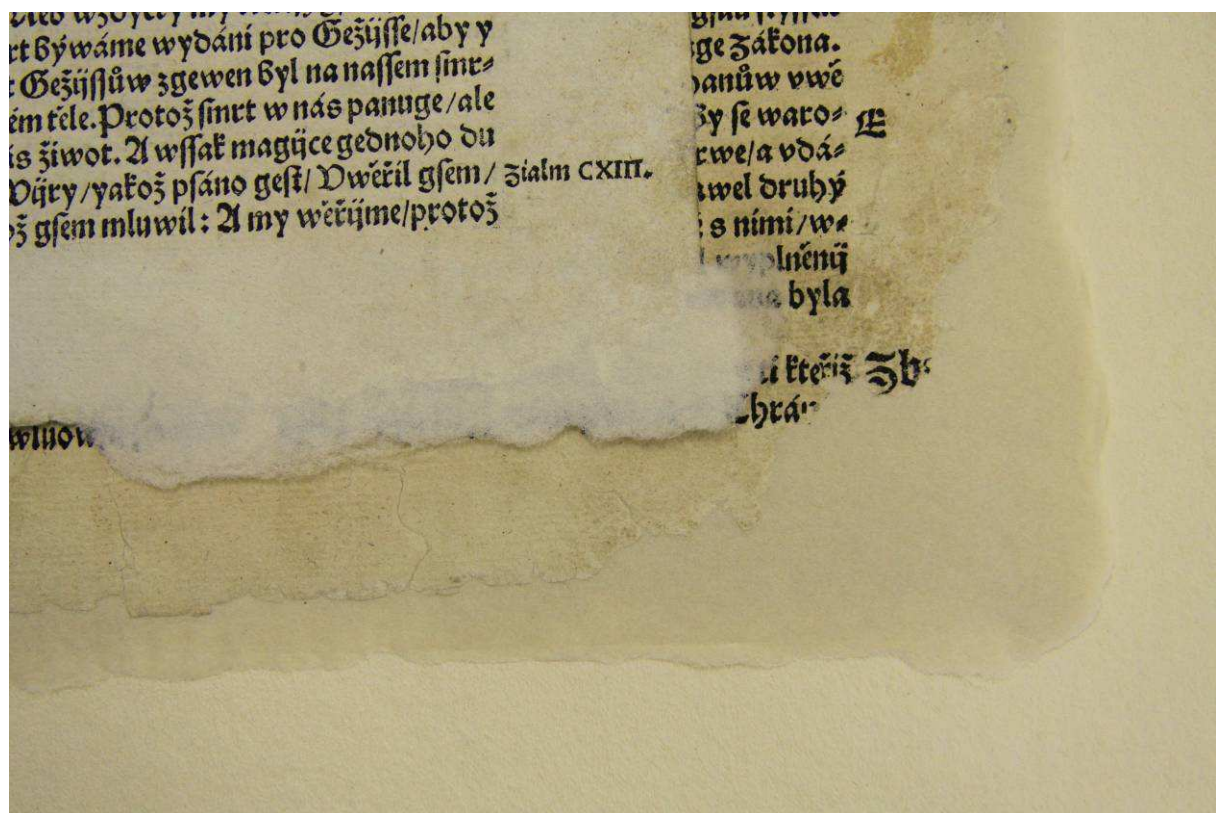 rt býwáme wydáni pro Gežijsse/aby y
Gežijssůw zgewen byl na nassem smr⸗
ém těle. Protož smrt w nás panuge/ale
is žiwot. A wssak magijce gednoho du
Wijry/yakož psáno gest/ Vwěřil gsem/ žialm CXIII.
ož gsem mluwil: A my wěřijme/protož
ge zákona.
panůw vwě
By se waro⸗
E
rwe/a vdá⸗
awel druhý
s nimi/we⸗
plněnij
byla
kteřiž Zb⸗
Chrá